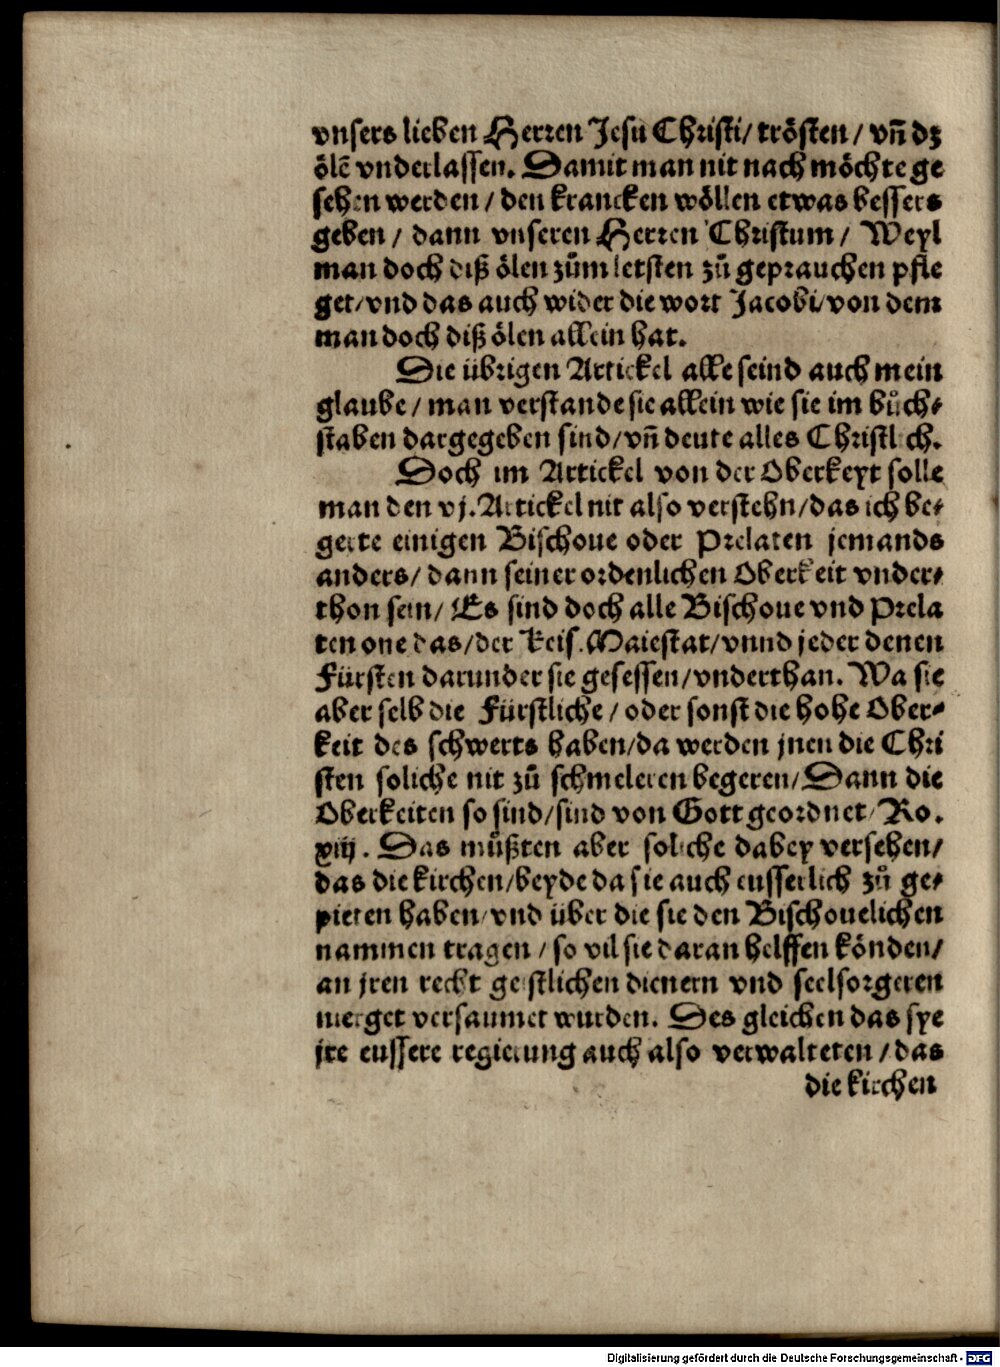 vnsers lieben Herren Jesu Christi/ trösten / vñ dz
ölē vnderlassen. Damit man nit nach möchte ge
sehen werden / den krancken wöllen etwas bessers
geben / dann vnseren Herren Christum / Weyl
man doch diß ölen zům letsten zů geprauchen pfle
get/vnd das auch wider die wort Jacobi/von dem
man doch diß ölen allein hat.
Die übrigen Artickel alle seind auch mein
glaube / man verstande sie allein wie sie im bůch⸗
staben dargegeben sind/vñ deute alles Christlich.
Doch im Artickel von der Oberkeyt solle
man den vj. Artickel nit also verstehn/das ich be⸗
gerte einigen Bischoue oder Prelaten jemands
anders/ dann seiner ordenlichen Oberkeit vnder⸗
thon sein/ Es sind doch alle Bischoue vnd Prela
ten one das/der Keis. Maiestat/vnnd jeder denen
Fürsten darunder sie gesessen/vnderthan. Wa sie
aber selb die Fürstliche / oder sonst die hohe Ober⸗
keit des schwerts haben/da werden jnen die Chri
sten soliche nit zů schmeleren begeren/ Dann die
Oberkeiten so sind/sind von Gott geordnet/ Ro.
xiij. Das můßten aber soliche dabey versehen/
das die kirchen/beyde da sie auch eusserlich zů ge⸗
pieten haben/vnd über die sie den Bischouelichen
nammen tragen / so vil sie daran helffen könden/
an jren recht geistlichen dienern vnd seelsorgeren
nierget versaumet wurden. Des gleichen das sye
jre eussere regierung auch also verwalteten / das
die kirchen
Digitalisierung gefördert durch die Deutsche Forschungsgemeinschaft - DFG